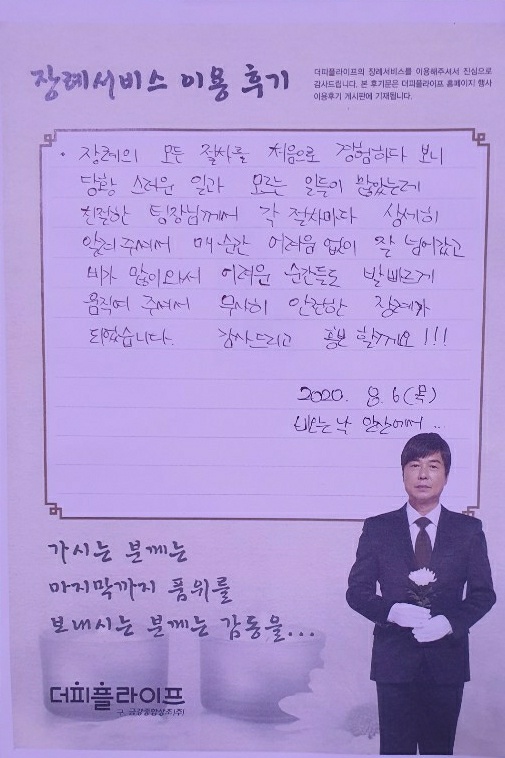 장례서비스 이용 후기
더피플라이프의 장례서비스를 이용해주셔서 진심으로
감사드립니다. 본 후기문은 더피플라이프 홈페이지 행사
이용후기 게시판에 기재됩니다.
· 장례의 모든 절차를 처음으로 경험하다 보니
당황 스러운 일과 모르는 일들이 많았는데
친절한 팀장님께서 각 절차마다 상세히
알려주셔서 매순간 어려움 없이 잘 넘어갔고
비가 많이와서 어려운 순간들도 발빠르게
움직여 주셔서 무사히 안전한 장례가
되었습니다. 감사드리고 홍보 할께요!!!
2020. 8. 6(목)
비오는 낮 일산에서..
가시는 분께는
마지막까지 품위를
보내시는 분께는 감동을...
더피플라이프
구. 금강종합상조(주)